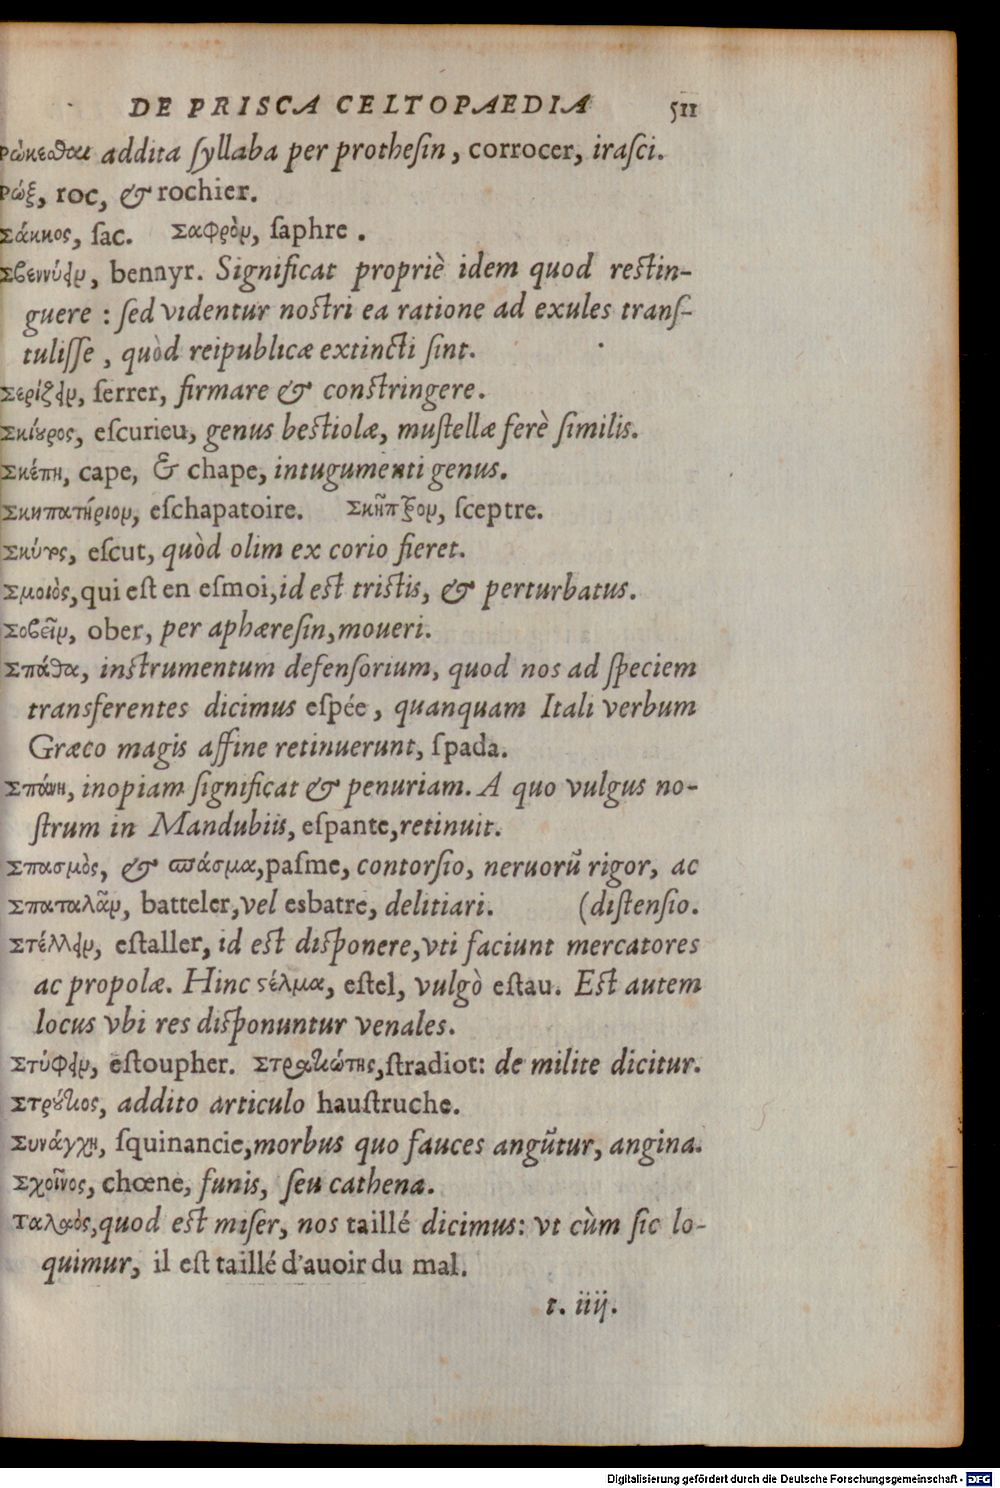 DE PRISCA CELTOPAEDIA 511
Ρώκεσθαι addita ſyllaba per protheſin, corrocer, iraſci.
Ρώξ, roc, & rochier.
Σάκκος, ſac. Σαφρὸν, ſaphre.
Σβεννύειν, bennyr. Significat propriè idem quod reſtin-
guere : ſed videntur noſtri ea ratione ad exules tranſ-
tuliſſe, quòd reipublicæ extincti ſint.
Σερίζειν, ſerrer, firmare & conſtringere.
Σκίουρος, eſcurieu, genus beſtiolæ, muſtellæ ferè ſimilis.
Σκέπη, cape, & chape, intugumenti genus.
Σκηπατήριον, eſchapatoire. Σκῆπτρον, ſceptre.
Σκύτος, eſcut, quòd olim ex corio fieret.
Σμοιὸς, qui eſt en eſmoi, id eſt triſtis, & perturbatus.
Σοβεῖν, ober, per aphæreſin, moueri.
Σπάθα, inſtrumentum defenſorium, quod nos ad ſpeciem
transferentes dicimus eſpée, quanquam Itali verbum
Græco magis affine retinuerunt, ſpada.
Σπάνη, inopiam ſignificat & penuriam. A quo vulgus no-
ſtrum in Mandubiis, eſpante, retinuit.
Σπασμὸς, & πάσμα, paſme, contorſio, neruorũ rigor, ac
Σπαταλᾶν, batteler, vel esbatre, delitiari. (diſtenſio.
Στέλλειν, eſtaller, id eſt diſponere, vti faciunt mercatores
ac propolæ. Hinc ςέλμα, eſtel, vulgò eſtau. Eſt autem
locus vbi res diſponuntur venales.
Στύφειν, eſtoupher. Στρατιώτης, ſtradiot: de milite dicitur.
Στρούθιος, addito articulo hauſtruche.
Συνάγχη, ſquinancie, morbus quo fauces angũtur, angina.
Σχοῖνος, chœne, funis, ſeu cathena.
Ταλαὸς, quod eſt miſer, nos taillé dicimus: vt cùm ſic lo-
quimur, il eſt taillé d'auoir du mal.
t. iiij.
Digitalisierung gefördert durch die Deutsche Forschungsgemeinschaft - DFG